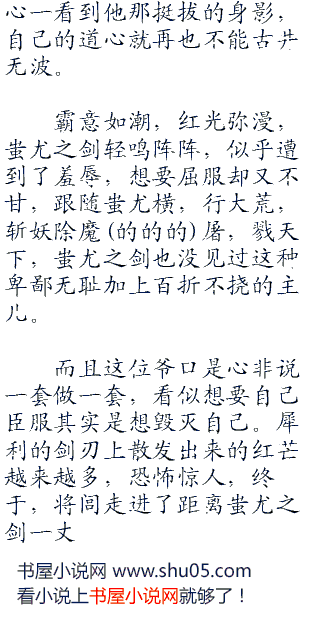 心一看到他那挺拔的身影，
自己的道心就再也不能古井
无波。
霸意如潮，红光弥漫，
蚩尤之剑轻鸣阵阵，似乎遭
到了羞辱，想要屈服却又不
甘，跟随蚩尤横，行大荒，
斩妖除魔(的的的)屠，戮天
下，蚩尤之剑也没见过这种
卑鄙无耻加上百折不挠的主
儿。
而且这位爷口是心非说
一套做一套，看似想要自己
臣服其实是想毁灭自己。犀
利的剑刃上散发出来的红芒
越来越多，恐怖惊人，终
于，将闾走进了距离蚩尤之
剑一丈
书屋小说网 www.shu05.com
看小说上书屋小说网就够了！